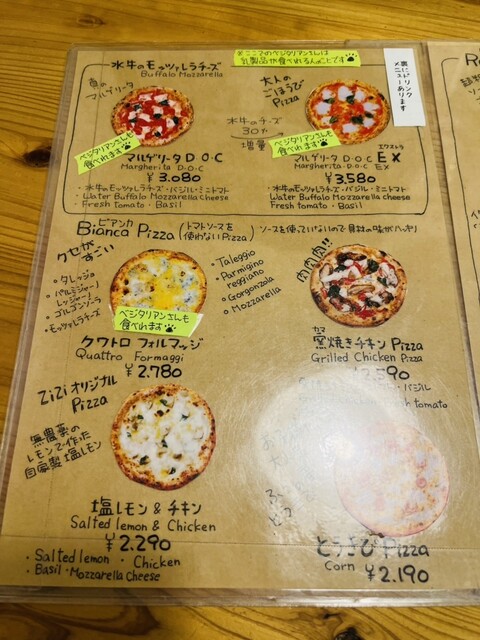 水牛のモッツァレラチーズ
Buffalo Mozzarella
※ここでのベジタリアンさんは
乳製品が食べれる人のことです
裏にドリンク
メニューあります
真の
マルゲリータ
大人の
ごほうび
Pizza
水牛のチーズ
30%
増量
ベジタリアンさんも
食べれます
ベジタリアンさんも
食べれます
マルゲリータ D・O・C
Margherita D.O.C
¥3.080
・水牛のモッツァレラチーズ・バジル・ミニトマト
Water Buffalo Mozzarella cheese
Fresh tomato ・ Basil
エクストラ
マルゲリータ D O C EX
Margherita D.O.C EX
¥3,580
・水牛のモッツァレラチーズ・バジル・ミニトマト
Water Buffalo Mozzarella cheese
Fresh tomato ・ Basil
ビアンカ
Bianca Pizza (トマトソースを
使わないPizza)
ソースを使っていないので具材の味がハッキリ
クセが
すごい
・タレッジョ
・パルミジャーノ
レッジャーノ
・ゴルゴンゾーラ
・モッツァレラチーズ
・Taleggio
・Parmigino
reggiano
・Gorgonzola
・Mozzarella
ベジタリアンさんも
食べれます
クワトロ フォルマッジ
Quattro Formaggi
¥2.780
肉肉肉!!
カマ
窯焼きチキン Pizza
Grilled Chicken Pizza
・バジル
tomato
ZiZi オリジナル
Pizza
無農薬の
レモンで作った
自家製塩レモン
塩レモン & チキン
Salted lemon & Chicken
¥2.290
・Salted lemon ・ Chicken
・Basil ・Mozzarella Cheese
とうきび Pizza
Corn ¥2.190